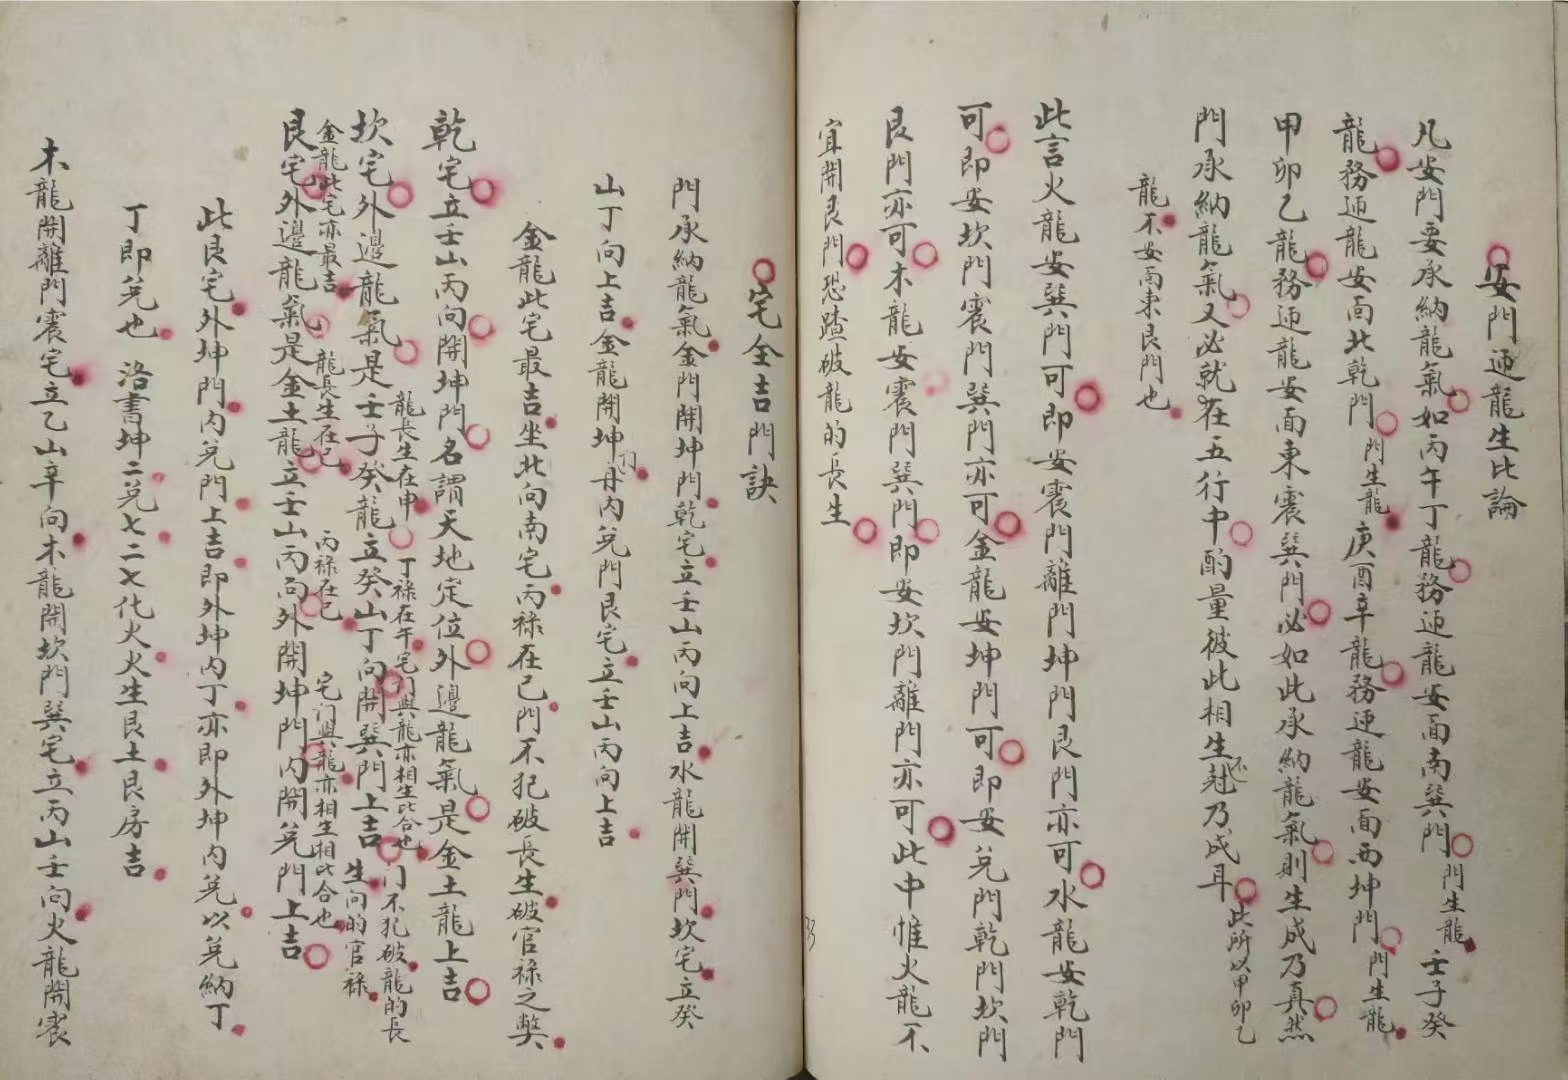 安門迎龍生比論
凡安門要承納龍氣如丙午丁龍務迎龍安面南巽門門生龍壬子癸
龍務迎龍安面北乾門門生龍庚酉辛龍務迎龍安面西坤門門生龍
甲卯乙龍務迎龍安面東震巽門必如此承納龍氣則生成乃真然
門承納龍氣又必就在五行中酌量彼此相生尅不乃成耳此所以甲卯乙
龍不安南東艮門也
此言火龍安巽門可即安震門離門坤門艮門亦可水龍安乾門
可即安坎門震門巽門亦可金龍安坤門可即安兌門乾門坎門
艮門亦可木龍安震門巽門即安坎門離門亦可此中惟火龍不
宜開艮門恐踏破龍的長生
33
宅全吉門訣
門承納龍氣金門開坤門乾宅立壬山丙向上吉水龍開巽門坎宅立癸
山丁向上吉金龍開坤門丹內兌門艮宅立壬山丙向上吉
金龍此宅最吉坐北向南宅丙祿在巳門不犯破長生破官祿之弊
乾宅立壬山丙向開坤門名謂天地定位外邊龍氣是金土龍上吉
龍長生在申 丁祿在午宅門與龍亦相生比合也 門不犯破龍的長
坎宅外邊龍氣是壬子癸龍立癸山丁向開巽門上吉 生向的官祿
金龍此宅亦最吉 龍長生在巳 丙祿在巳 宅门與龍亦相生相比合也
艮宅外邊龍氣是金土龍立壬山丙向外開坤門內開兌門上吉
此艮宅外坤門內兌門上吉即外坤內丁亦即外坤內兌以兌納丁
丁即兌也 洛書坤二兌七二七化火火生艮土艮房吉
木龍開離門震宅立乙山辛向木龍開坎門巽宅立丙山壬向火龍開震